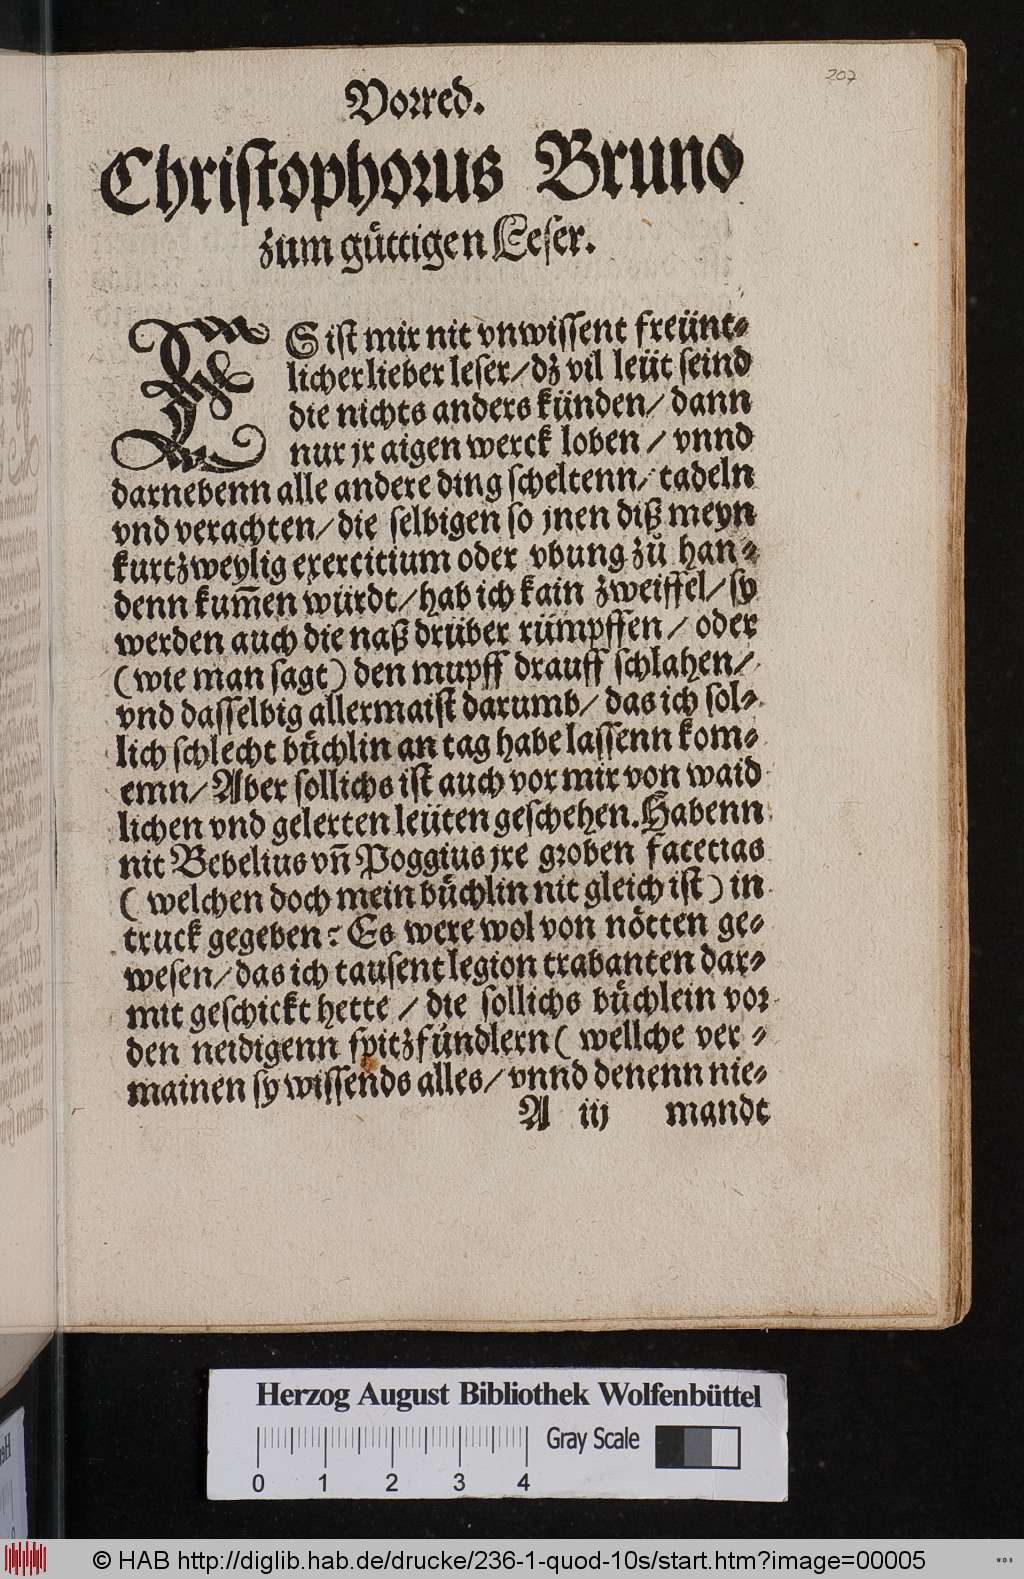 207
Vorred.
Christophorus Bruno
zum gůttigen Leser.
ES ist mir nit vnwissent freünt⸗
licher lieber leser/ dz vil leüt seind
die nichts anders künden/ dann
nur jr aigen werck loben / vnnd
darnebenn alle andere ding scheltenn/ tadeln
vnd verachten/ die selbigen so jnen diß meyn
kurtzweylig exercitium oder vbung zů han⸗
denn kum̄en würdt/ hab ich kain zweiffel/ sy
werden auch die naß drüber rümpffen / oder
(wie man sagt) den mupff drauff schlahen/
vnd dasselbig allermaist darumb/ das ich sol⸗
lich schlecht bůchlin an tag habe lassenn kom⸗
emn/ Aber sollichs ist auch vor mir von waid
lichen vnd gelerten leüten geschehen. Habenn
nit Bebelius vn̄ Poggius jre groben facetias
( welchen doch mein bůchlin nit gleich ist) in
truck gegeben: Es were wol von nötten ge⸗
wesen/ das ich tausent legion trabanten dar⸗
mit geschickt hette / die sollichs bůchlein vor
den neidigenn spitzfündlern ( wellche ver⸗
mainen sy wissends alles/ vnnd denenn nie⸗
A iij mandt
Herzog August Bibliothek Wolfenbüttel
Gray Scale
0 1 2 3 4
© HAB http://diglib.hab.de/drucke/236-1-quod-10s/start.htm?image=00005
WDB